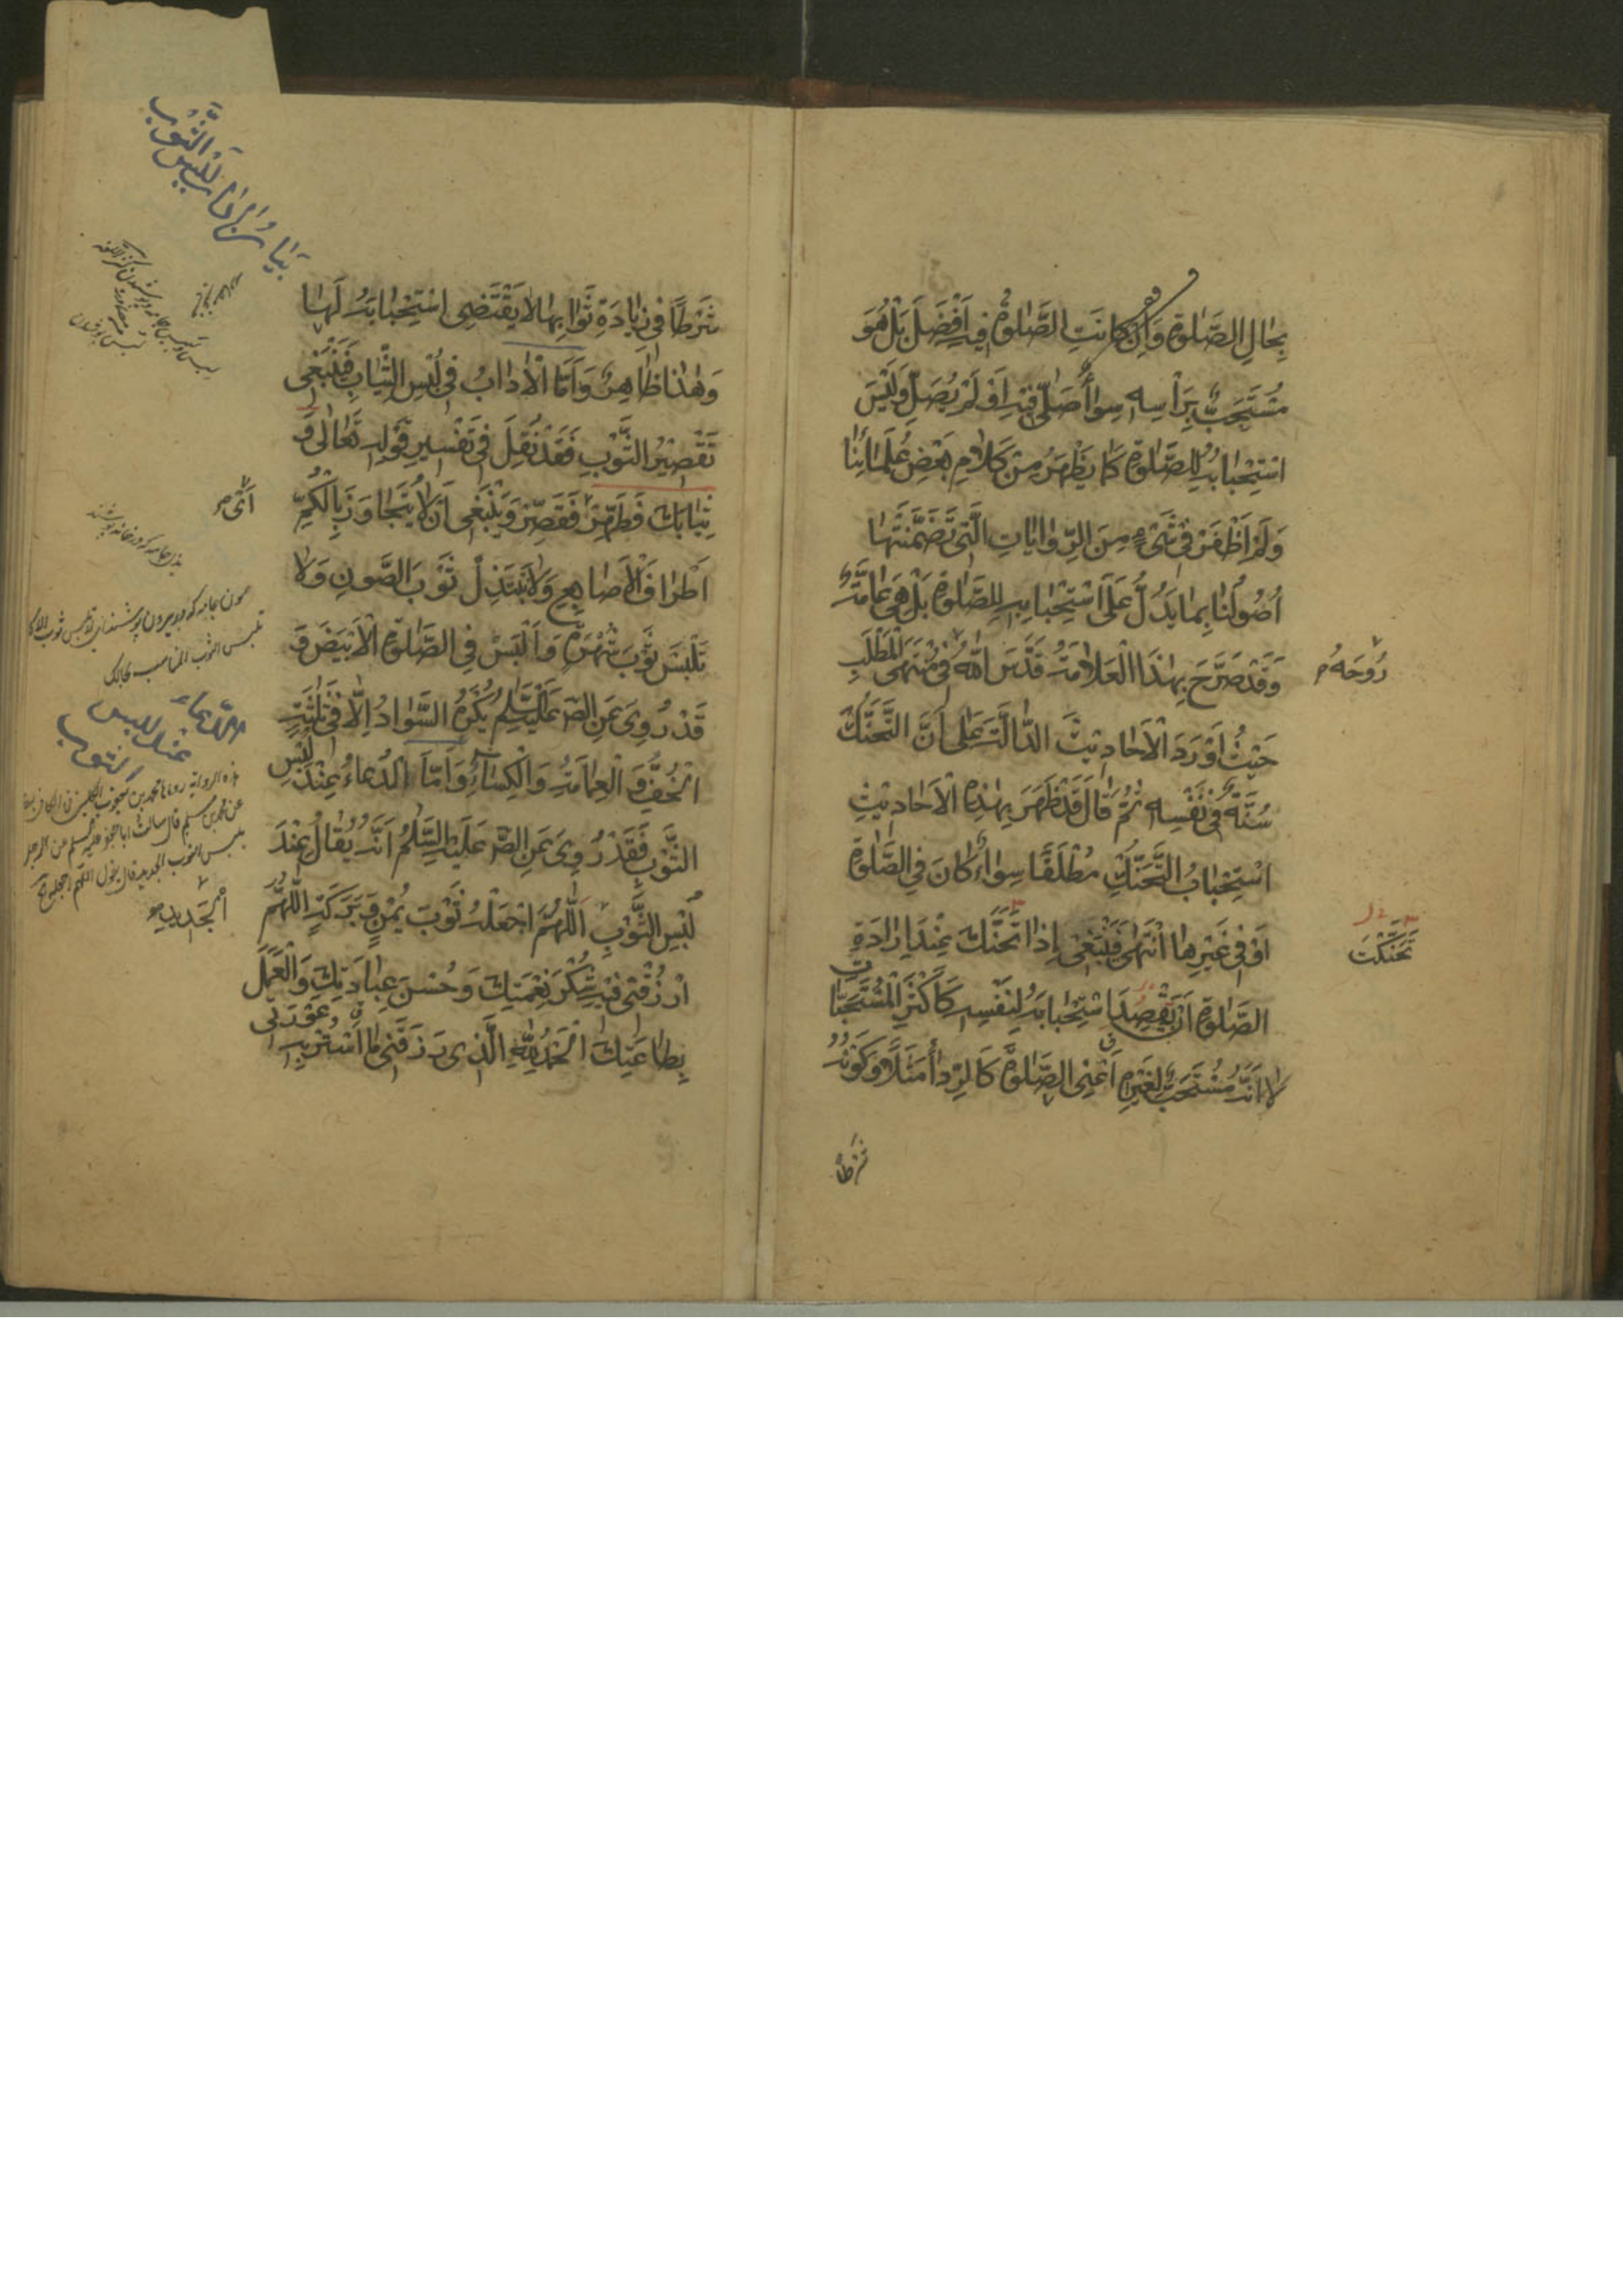 بِحَالِ الصَّلٰوةِ وَاِنْ كَانَتِ الصَّلٰوةُ فِيهِ اَفْضَلَ بَلْ هُوَ
مُسْتَحَبٌّ بِرَأْسِهِ سِوَاءٌ صَلّٰى فِيْهِ اَوْ لَمْ يُصَلِّ وَلَيْسَ
اسْتِحْبَابُهُ لِلصَّلٰوةِ كَمَا يَظْهَرُ مِنْ كَلَامِ بَعْضِ عُلَمَائِنَا
وَلَمْ اَظْفَرْ فِي شَيْءٍ مِنَ الرِّوَايَاتِ الَّتِي تَضَمَّنَتْهَا
اُصُوْلُنَا بِمَا يَدُلُّ عَلَى اسْتِحْبَابِهِ لِلصَّلٰوةِ بَلْ هِيَ عَامَّةٌ
وَقَدْ صَرَّحَ بِهٰذَا الْعَلَّامَةُ قَدَّسَ اللهُ فِي مُنْتَهَى الْمَطْلَبِ
رُوحَهُ
حَيْثُ اَوْرَدَ الْاَحَادِيْثَ الدَّالَّةَ عَلٰى اَنَّ التَّحَنُّكَ
سُنَّةٌ فِي نَفْسِهِ ثُمَّ قَالَ قَدْ ظَهَرَ بِهٰذِهِ الْاَحَادِيْثِ
اسْتِحْبَابُ التَّحَنُّكِ مُطْلَقًا سِوَاءٌ كَانَ فِي الصَّلٰوةِ
اَوْ فِي غَيْرِهَا انْتَهٰى فَيَنْبَغِي اِذَا تَحَنَّكَ عِنْدَ اِرَادَةِ
تَحَنَّكْتَ
الصَّلٰوةِ اَنْ تَقْصِدَ اسْتِحْبَابَهُ لِنَفْسِهِ كَاَكْثَرِ الْمُسْتَحَبَّاتِ
لَا اَنَّهُ مُسْتَحَبٌّ لِغَيْرِهِ اَعْنِي الصَّلٰوةَ كَالرِّدَاءِ مَثَلًا وَكَوْنُهُ
شرطا
بَيَانُ اٰدَابِ لُبْسِ الثَّوْبِ
شَرْطًا فِي زِيَادَةِ ثَوَابِهَا لَا يَقْتَضِي اسْتِحْبَابَهُ لَهَا
وَهٰذَا ظَاهِرٌ وَاَمَّا الْاٰدَابُ فِي لُبْسِ الثِّيَابِ فَيَنْبَغِي
تَقْصِيْرُ الثَّوْبِ فَقَدْ نُقِلَ فِي تَفْسِيْرِ قَوْلِهِ تَعَالٰى وَ
ثِيَابَكَ فَطَهِّرْ فَقَصِّرْ وَيَنْبَغِي اَنْ لَا يُتَجَاوَزَ بِالْكُمِّ
اَيْ
اَطْرَافَ الْاَصَابِعِ وَلَا تَبْتَذِلْ ثَوْبَ الصَّوْنِ وَلَا
تَلْبَسْ ثَوْبَ شُهْرَةٍ وَالْبَسْ فِي الصَّلٰوةِ الْاَبْيَضَ وَ
قَدْ رُوِيَ عَنِ الصَّ عَلَيْهِ السَّلَامُ يُكْرَهُ السَّوَادُ اِلَّا فِي ثَلٰثَةٍ
الْخُفِّ وَالْعِمَامَةِ وَالْكِسَاءِ وَاَمَّا الدُّعَاءُ عِنْدَ لُبْسِ
الدّعاء
عند لبس
الثوب
الثَّوْبِ فَقَدْ رُوِيَ عَنِ الصَّ عَلَيْهِ السَّلَامُ اَنَّهُ يُقَالُ عِنْدَ
لُبْسِ الثَّوْبِ اَللّٰهُمَّ اجْعَلْهُ ثَوْبَ يُمْنٍ وَبَرَكَةٍ اللّٰهُمَّ
الْجَدِيدِ
ارْزُقْنِي فِيْهِ شُكْرَ نِعْمَتِكَ وَحُسْنَ عِبَادَتِكَ وَالْعَمَلَ
بِطَاعَتِكَ الْحَمْدُ لِلّٰهِ الَّذِي رَزَقَنِي مَا اَسْتُرُ بِهِ عَوْرَتِي
هذه الرواية رواها محمد بن يعقوب الكليني في الكافي
عن محمد بن مسلم قال سألت ابا جعفر عليه السلام عن الرجل
يلبس الثوب الجديد قال يقول اللهم اجعله